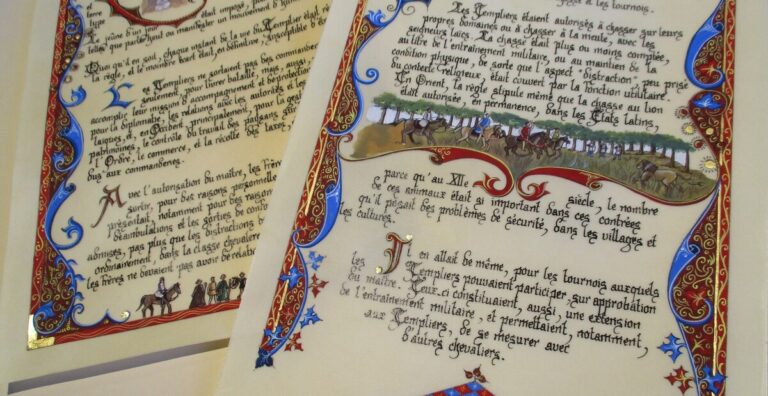 était imposé, pour
Le jeûne d'un jour
telles que parler haut ou manifester un mouvement d'humeur
Quoi qu'il en soit, chaque instant de la vie du Templier était régi
par la règle, et le moindre écart était, en définitive, susceptible d'
Les Templiers ne sortaient pas des commanderies
seulement, pour livrer bataille, mais, aussi,
accomplir leur mission d'accompagnement et de protection
pour la diplomatie, les relations avec les autorités et les
laïques, et, en Occident, principalement, pour la gestion
patrimoines, le contrôle du travail des paysans
l'Ordre, le commerce, et la récolte des taxes,
dus aux commanderies.
Avec l'autorisation du maître, les Frères
sortir, pour des raisons personnelles
présentait, notamment pour des raisons
déambulations et les sorties de
admises, pas plus que les distractions
ordinairement, dans la classe chevaleresque
les frères ne devaient pas avoir de relations
chasse et les tournois.
Les Templiers étaient autorisés à chasser sur leurs
propres domaines ou à chasser à la meute, avec les
seigneurs laïcs. La chasse était plus ou moins comptée,
au titre de l'entraînement militaire, ou au maintien de la
condition physique, de sorte que l'aspect "distraction", peu prisé
du contexte religieux, était couvert par la fonction utilitaire.
En Orient, la règle stipule même que la chasse au lion
était autorisée, en permanence, dans les États latins,
parce qu'au XIIe siècle, le nombre
de ces animaux était si important dans ces contrées
qu'il posait des problèmes de sécurité, dans les villages et
les cultures.
Il en allait de même, pour les tournois auxquels
les Templiers pouvaient participer, sur approbation
du maître. Ceux-ci constituaient, aussi, une extension
de l'entraînement militaire, et permettaient, notamment,
aux Templiers, de se mesurer avec
d'autres chevaliers.